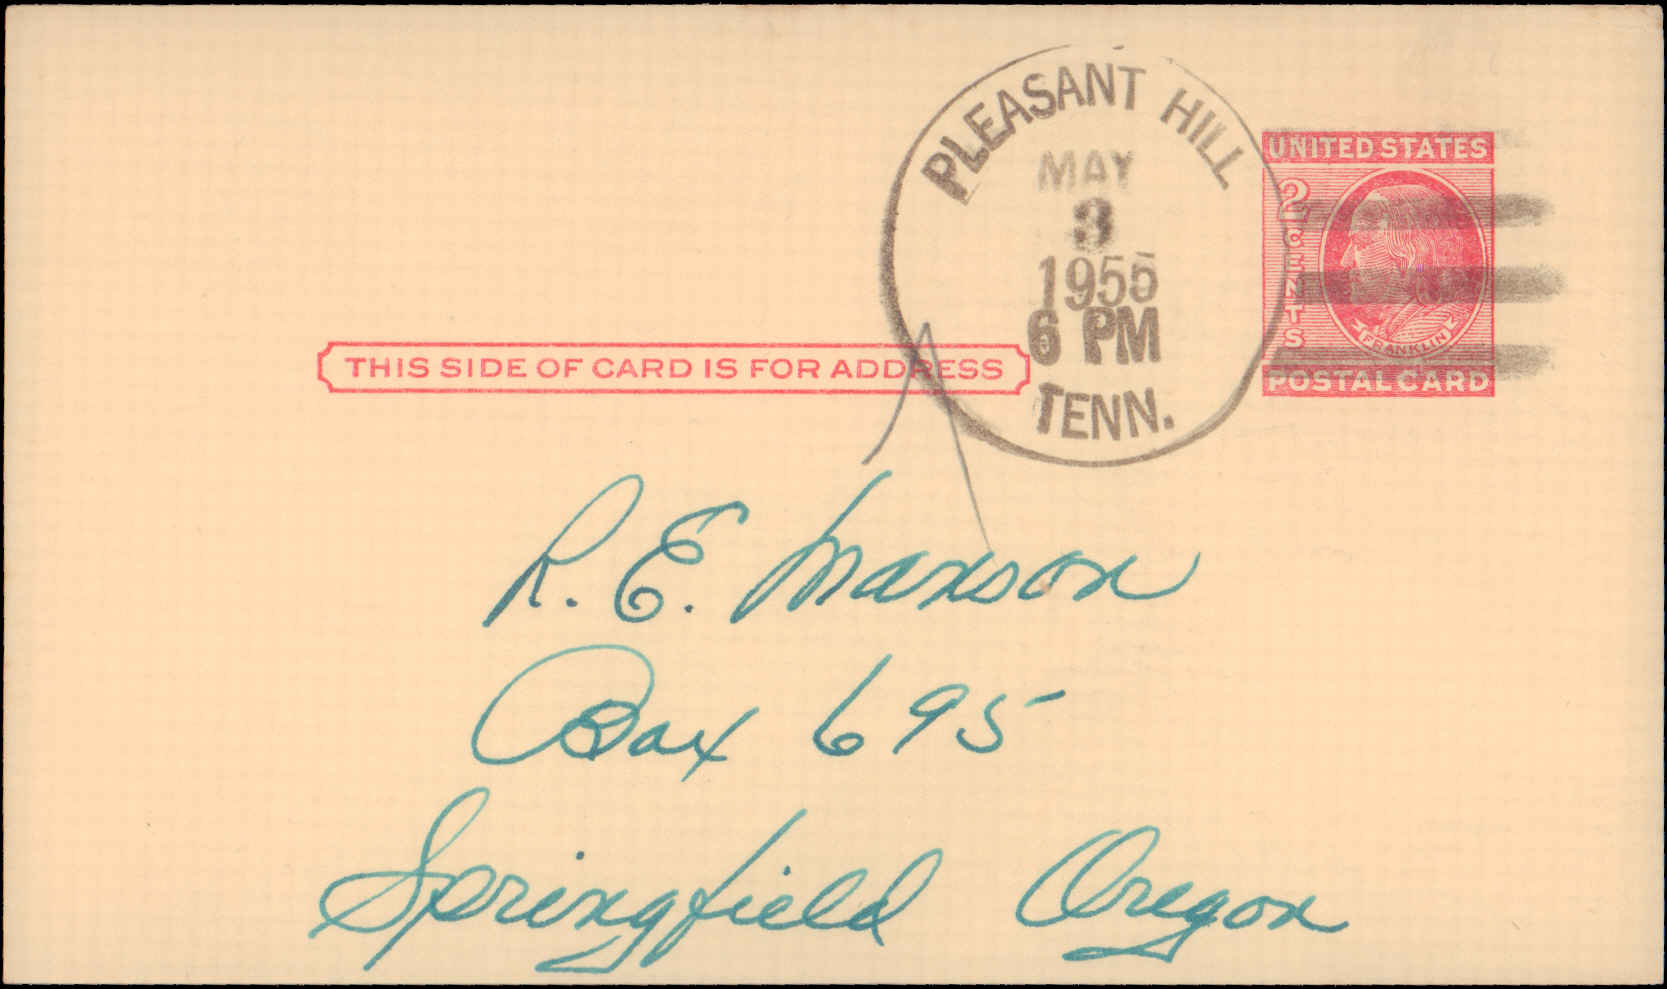 PLEASANT HILL
MAY
3
1955
6 PM
TENN.
UNITED STATES
2 CENTS
FRANKLIN
POSTAL CARD
THIS SIDE OF CARD IS FOR ADDRESS
R. E. Maxson
Box 695
Springfield Oregon